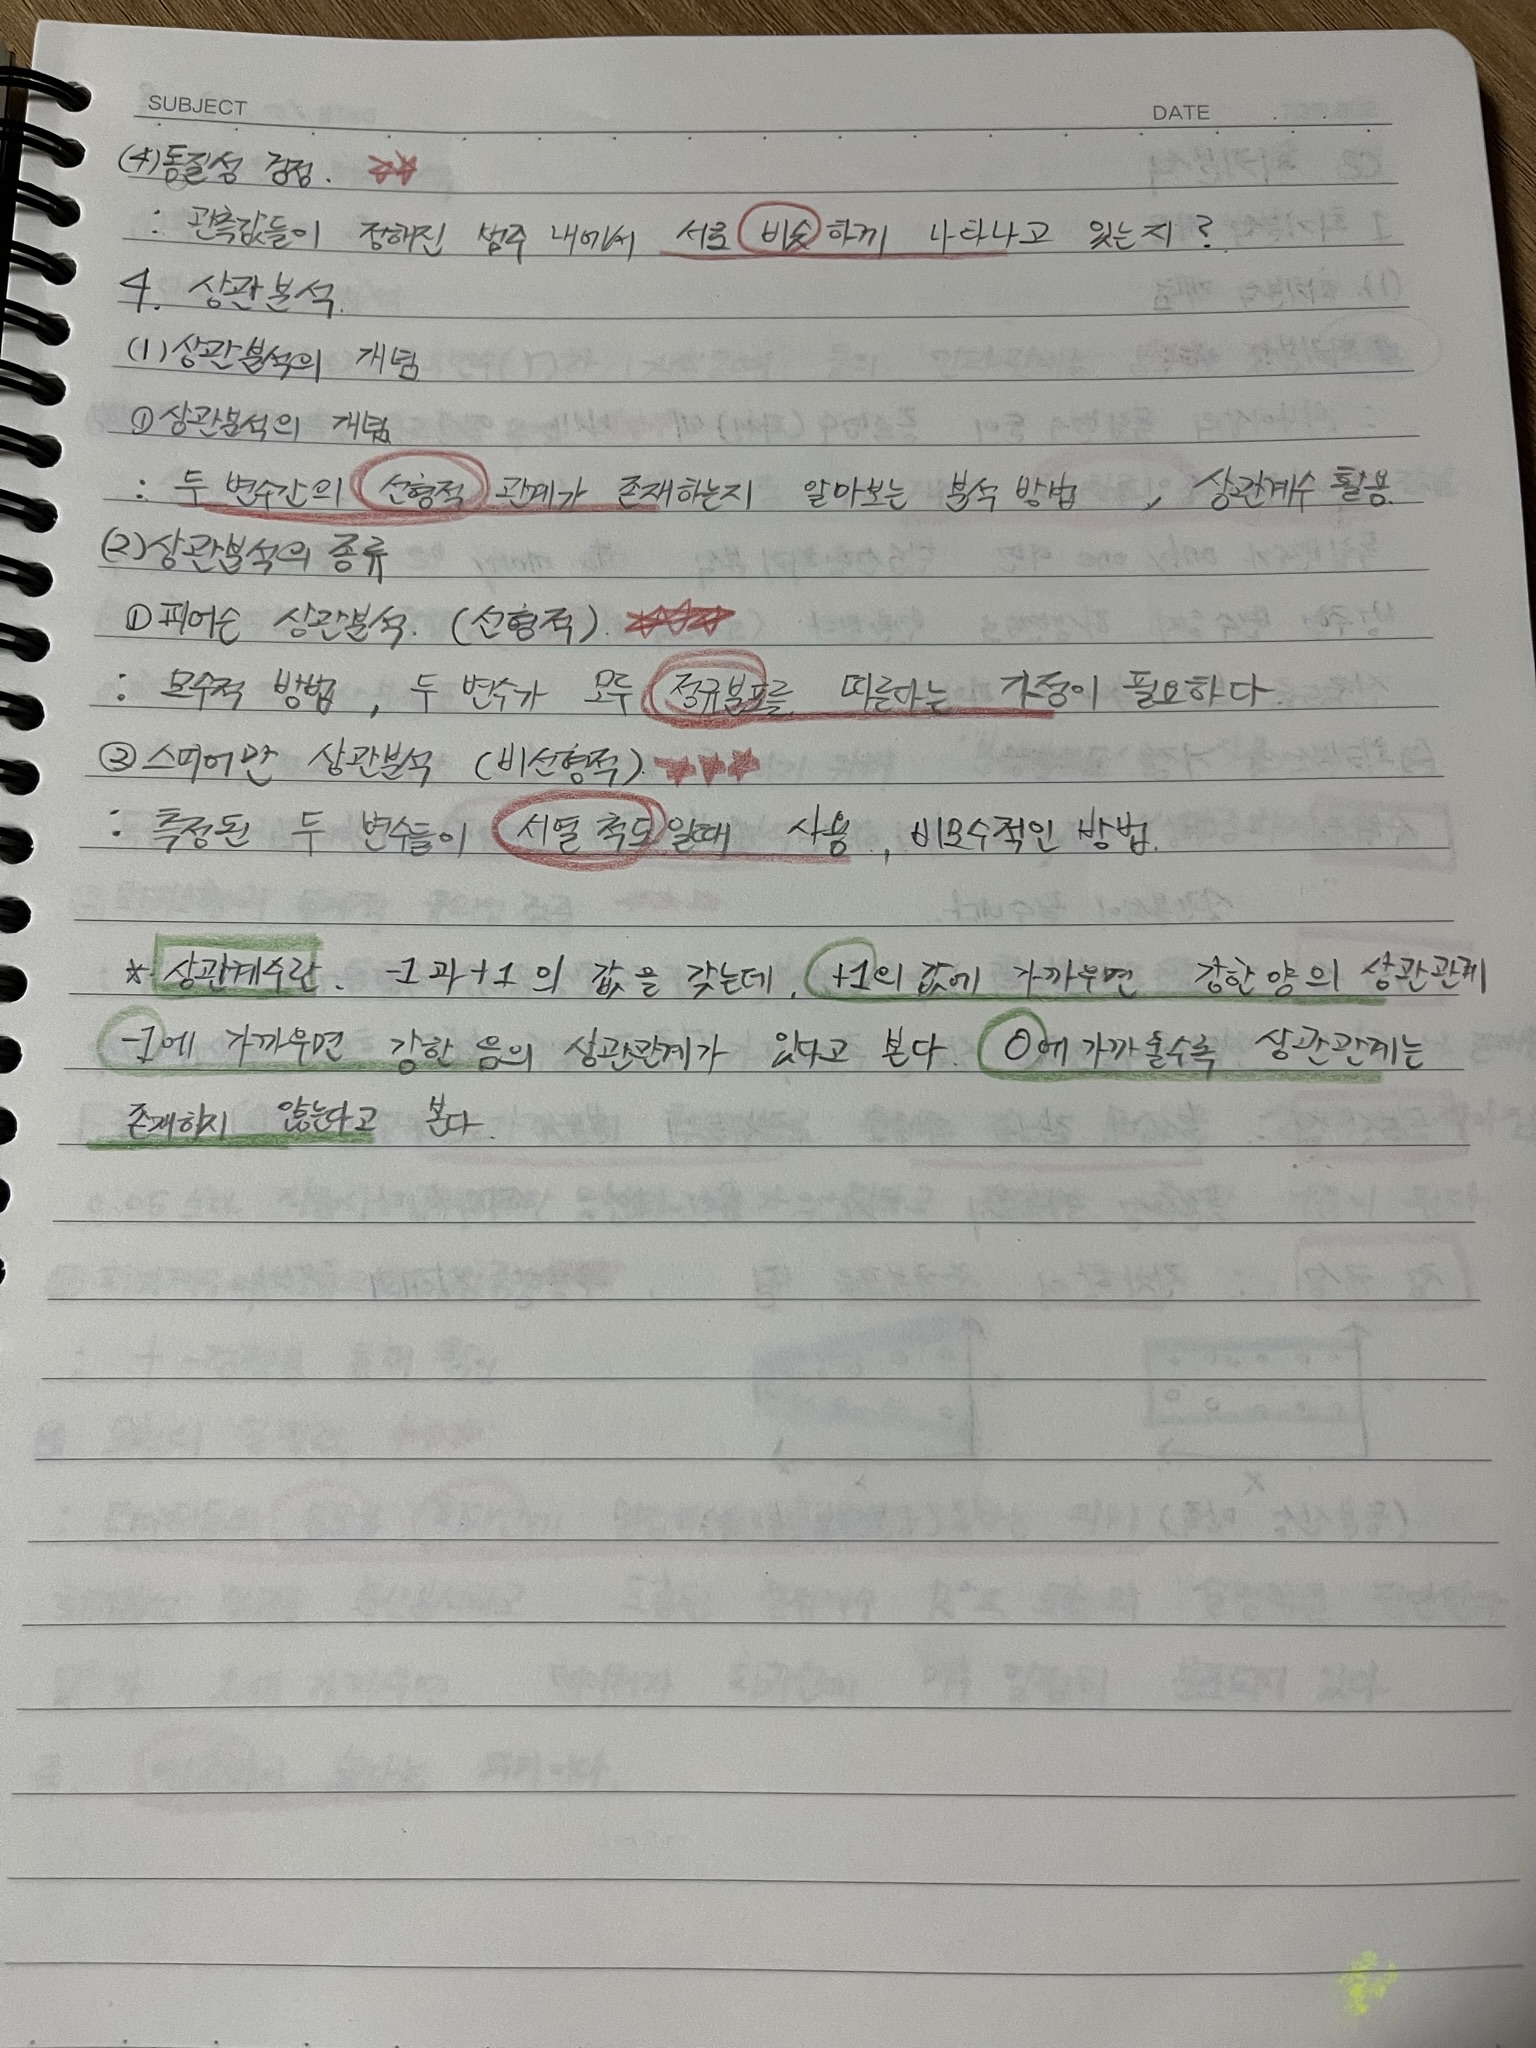 SUBJECT DATE
(4) 동질성 검정.
: 관측값들이 정해진 범주 내에서 서로 비슷하게 나타나고 있는지?
4. 상관분석.
(1) 상관분석의 개념
① 상관분석의 개념
: 두 변수간의 선형적 관계가 존재하는지 알아보는 분석 방법, 상관계수 활용.
(2) 상관분석의 종류
① 피어슨 상관분석. (선형적).
: 모수적 방법, 두 변수가 모두 정규분포를 따른다는 가정이 필요하다.
② 스피어만 상관분석 (비선형적).
: 측정된 두 변수들이 서열 척도일때 사용, 비모수적인 방법.
* 상관계수란. -1과 +1의 값을 갖는데, +1의 값에 가까우면 강한 양의 상관관계
-1에 가까우면 강한 음의 상관관계가 있다고 본다. 0에 가까울수록 상관관계는
존재하지 않는다고 본다.